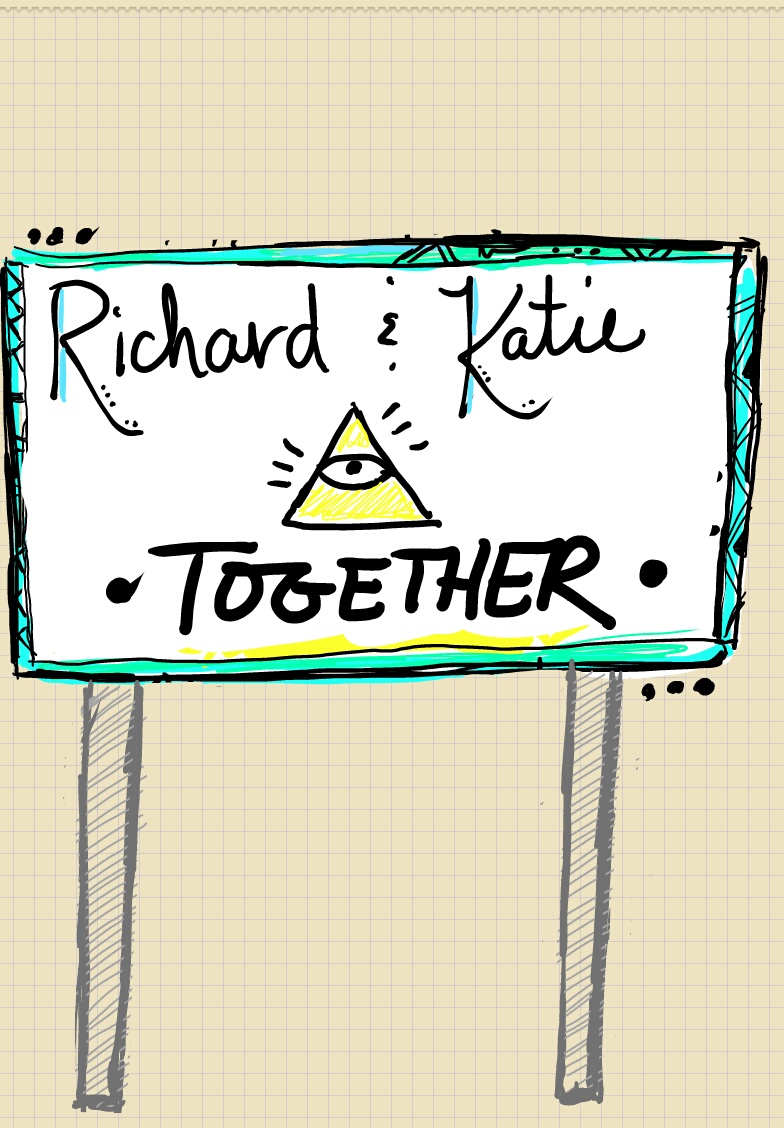 Richard & Katie
TOGETHER